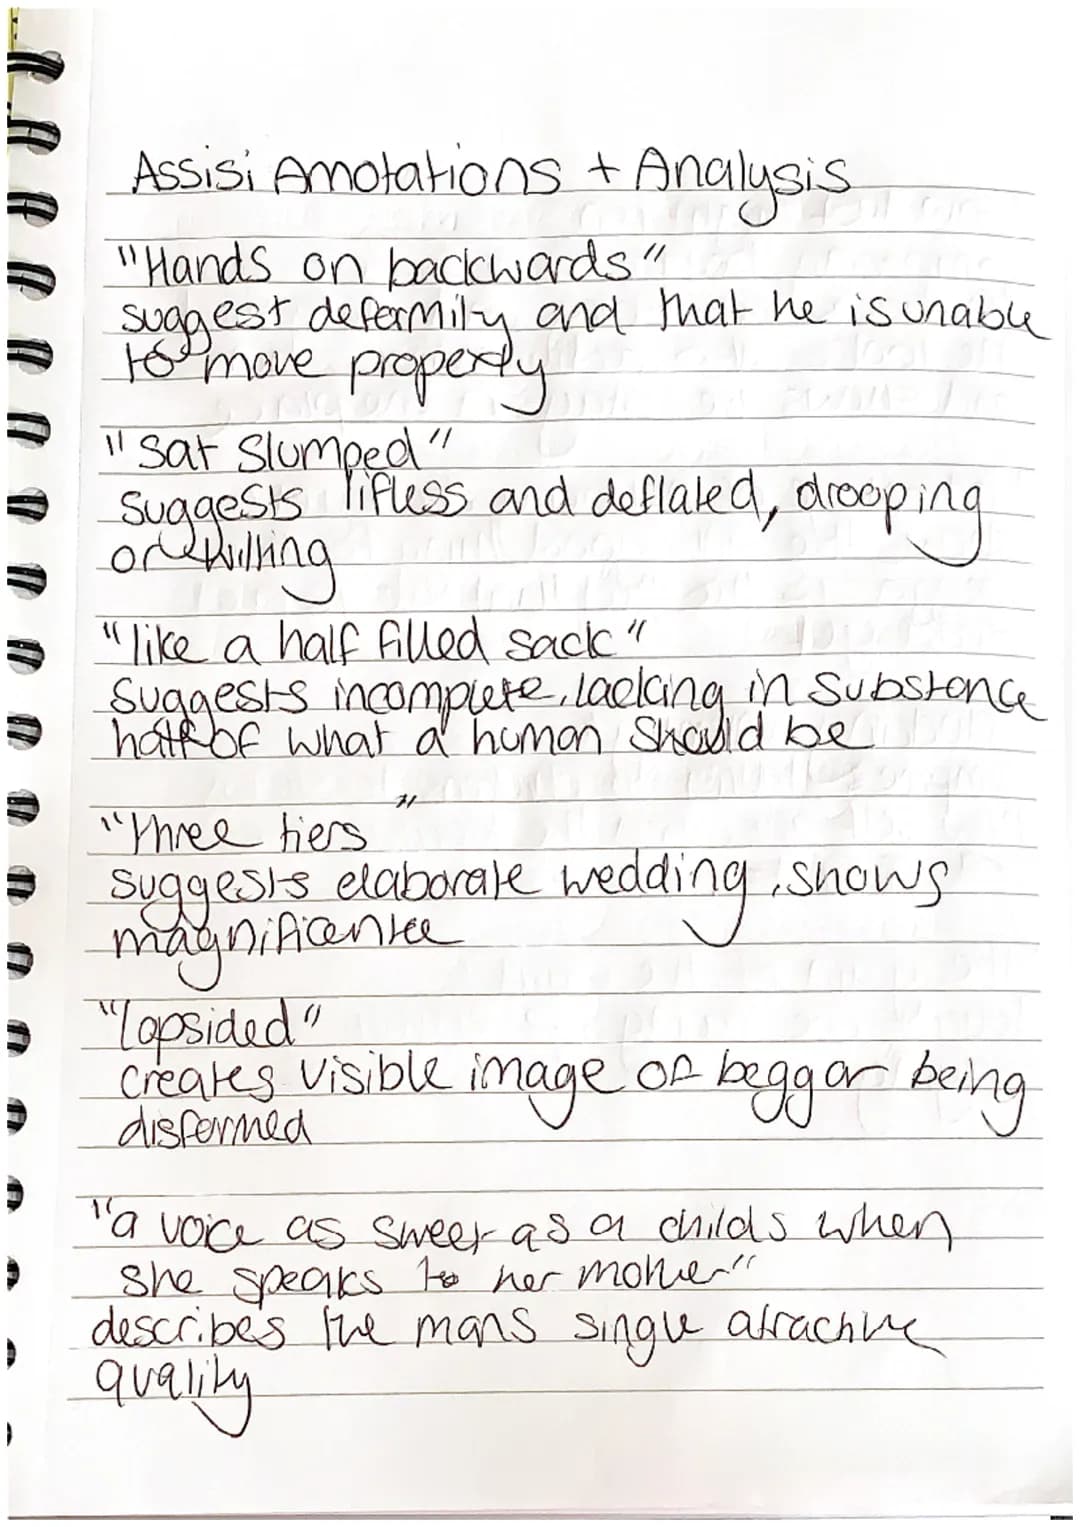 Assisi Amotations + Analysis
"Hands on backwards"
suggest deformily and that he is unable
to move properly
"Sat Slumped"
Suggests lifless and deflated, drooping
or
"like a half filled sack"
Suggests incomplete, lacking in Substance
half of what a human Should be
"three tiers"
suggests elaborate wedding, shows
magnificentce
"Lopsided"
creates visible image of beggar being
disformed
"a voice as sweet as a childs when
she speaks to her mother"
describes the mans single atractive
quality